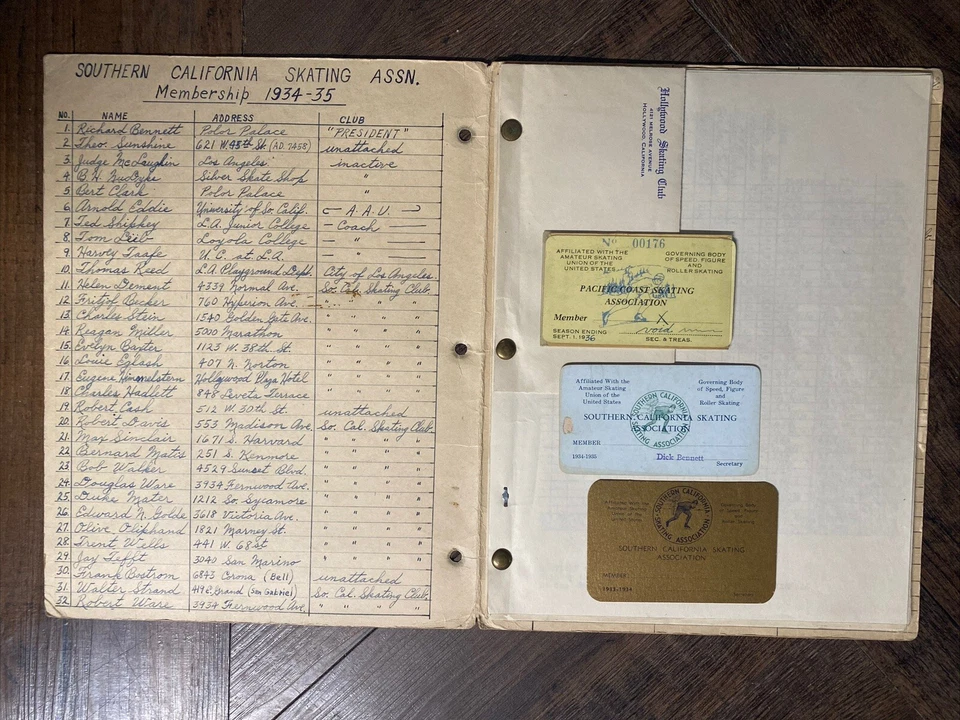 SOUTHERN CALIFORNIA SKATING ASSN.
Membership 1934-35
NO. NAME ADDRESS CLUB
1. Richard Bennett Polor Palace "PRESIDENT"
2 Theo. Sunshine 621 W. 95th St (AD. 7458) unattached
3 Judge McLaughlin Los Angeles. inactive
4 B.H. Silver Skate Shop "
5 Bert Clark Polor Palace "
6 Arnold Eddie University of So. Calif. A.A.U.
7 Ted Shipkey L.A. Junior College - Coach -
8. Tom Lieb Loyola College - " -
9. Harvey Taafe U. C. at L.A. - " -
10. Thomas Reed L.A Playground Dept. City of Los Angeles.
11 Helen Dement 4339 Normal Ave. So. Cal. Skating Club.
12 Fritjof Becker 760 Hyperion Ave. " " " "
13. Charles Stein 1540 Golden Gate Ave. " " " "
14 Reagan Miller 5000 Marathon " " " "
15. Evelyn Baxter 1123 W. 38th St. " " " "
16. Louie Eglash 407 N. Norton " " " "
17. Eugene Himmelstern Hollywood Plaza Hotel " " " "
18 Charles Hadlett 848 Leveta Terrace " " " "
19. Robert Cash 512 W. 50th St. unattached
20. Robert Davis 553 Madison Ave. So. Cal. Skating Club.
21. Max Sinclair 1671 S. Harvard " " " "
22 Bernard Matis 251 S. Kenmore " " " "
23 Bob Walker 4529 Sunset Blvd. " " " "
24. Douglas Ware 3934 Fernwood Ave. " " " "
25. Duke Mater 1212 So. Sycamore " " " "
26. Edward N. Golde 3618 Victoria Ave. " " " "
27. Olive Oliphand 1821 Marney St. " " " "
28. Trent Wells 441 W. 68 St " " " "
29. Jay Tefft 3040 San Marino " " " "
30. Frank Bostrom 6843 Corona (Bell) unattached
31. Walter Strand 419 E. Grand (San Gabriel) So. Cal. Skating Club.
32. Robert Ware 3934 Fernwood Ave. " " " "
Hollywood Skating Club
4121 MELROSE AVENUE
HOLLYWOOD, CALIFORNIA
No 00176
AFFILIATED WITH THE
AMATEUR SKATING
UNION OF THE
UNITED STATES
GOVERNING BODY
OF SPEED, FIGURE
AND
ROLLER SKATING
PACIFIC COAST SKATING
ASSOCIATION
Member X
SEASON ENDING
SEPT. 1, 1936
void
SEC. & TREAS.
Affiliated With the
Amateur Skating
Union of the
United States
Governing Body
of Speed, Figure
and
Roller Skating
SOUTHERN CALIFORNIA SKATING
ASSOCIATION
SOUTHERN CALIFORNIA
SKATING ASSOCIATION
MEMBER
1934-1935
Dick Bennett
Secretary
Affiliated With the
Amateur Skating
Union of the
United States
Governing Body
of Speed, Figure
and
Roller Skating
SOUTHERN CALIFORNIA
SKATING ASSOCIATION
SOUTHERN CALIFORNIA SKATING
ASSOCIATION
MEMBER:
1933-1934
Secretary